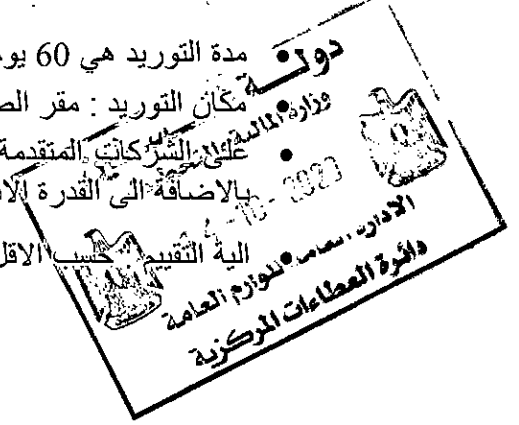 • مدة التوريد هي 60 يو
• مكان التوريد : مقر الص
• على الشركات المتقدمة
بالاضافة الى القدرة الا
• الية التقييم حسب الاقل
دولــــة
وزارة المالية
10 - 2023
الادارة العامة للوازم العامة
دائرة العطاءات المركزية